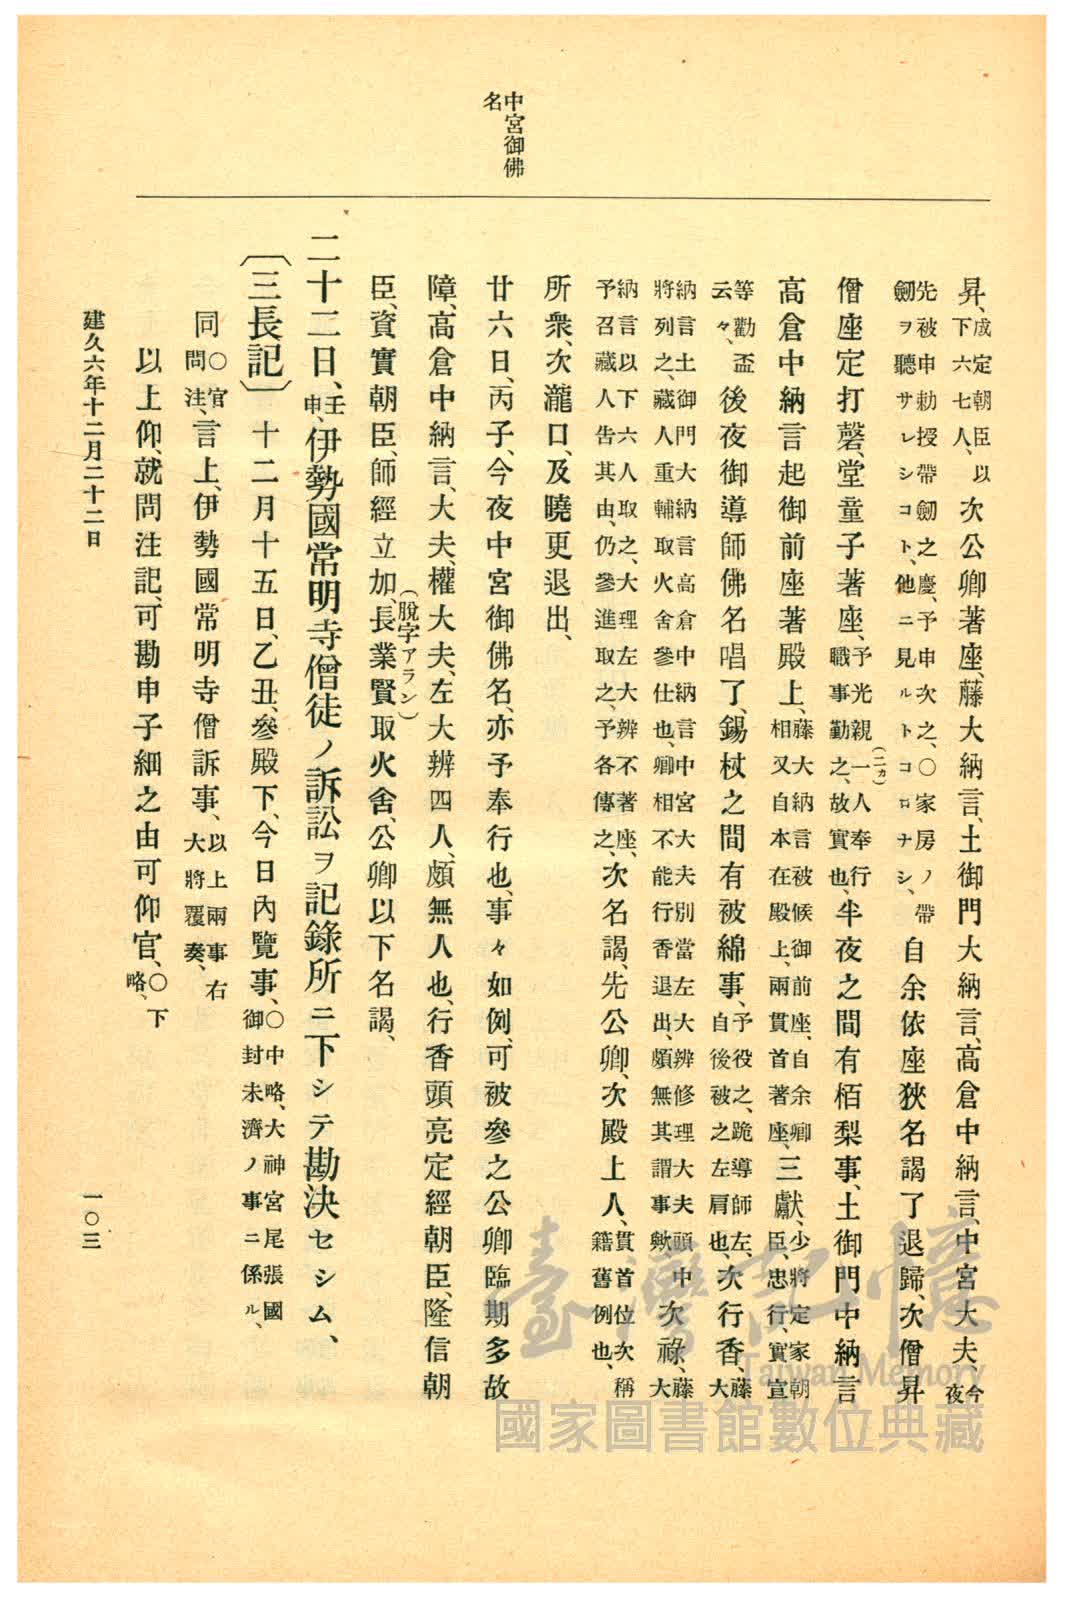 中宮御佛
名
昇、成定朝臣以下六七人、次公卿著座、藤大納言、土御門大納言、高倉中納言、中宮大夫、今夜
先被申勅授帶劒之慶、予申次之、○家房ノ帶劒ヲ聽サレシコト、他ニ見ルトコロナシ、自余依座狹名謁了退歸、次僧昇
僧座定打磬、堂童子著座、予光親一(二カ)人奉行職事勤之、故實也、半夜之間有栢梨事、土御門中納言
高倉中納言起御前座著殿上、藤大納言被候御前座、自余卿相又自本在殿上、兩貫首著座、三獻、少將定家朝臣、忠行、實宣
等勸盃云々、後夜御導師佛名唱了、錫杖之間有被綿事、予役之、跪導師左、自後被之左肩也、次行香、藤大
納言土御門大納言高倉中納言中宮大夫別當左大辨修理大夫頭中將列之、藏人重輔取火舍參仕也、卿相不能行香退出、頗無其謂事歟、次祿、藤大
納言以下六人取之、大理左大辨不著座、予召藏人告其由、仍參進取之、予各傳之、次名謁、先公卿、次殿上人、貫首位次稱籍舊例也、
所衆、次瀧口、及曉更退出、
廿六日、丙子、今夜中宮御佛名、亦予奉行也、事々如例、可被參之公卿臨期多故
障、高倉中納言、大夫、權大夫、左大辨四人、頗無人也、行香頭亮定經朝臣、隆信朝
臣、資實朝臣、師經立加、(脫字アラン)長業賢取火舍、公卿以下名謁、
二十二日、壬申、伊勢國常明寺僧徒ノ訴訟ヲ記錄所ニ下シテ勘決セシム、
〔三長記〕十二月十五日、乙丑、參殿下、今日內覽事、○中略、大神宮尾張國御封未濟ノ事ニ係ル、
同○官問注、言上、伊勢國常明寺僧訴事、以上兩事右大將覆奏、
以上仰、就問注記、可勘申子細之由可仰官、○下略、
建久六年十二月二十二日
一〇三
臺灣記憶
Taiwan Memory
國家圖書館數位典藏